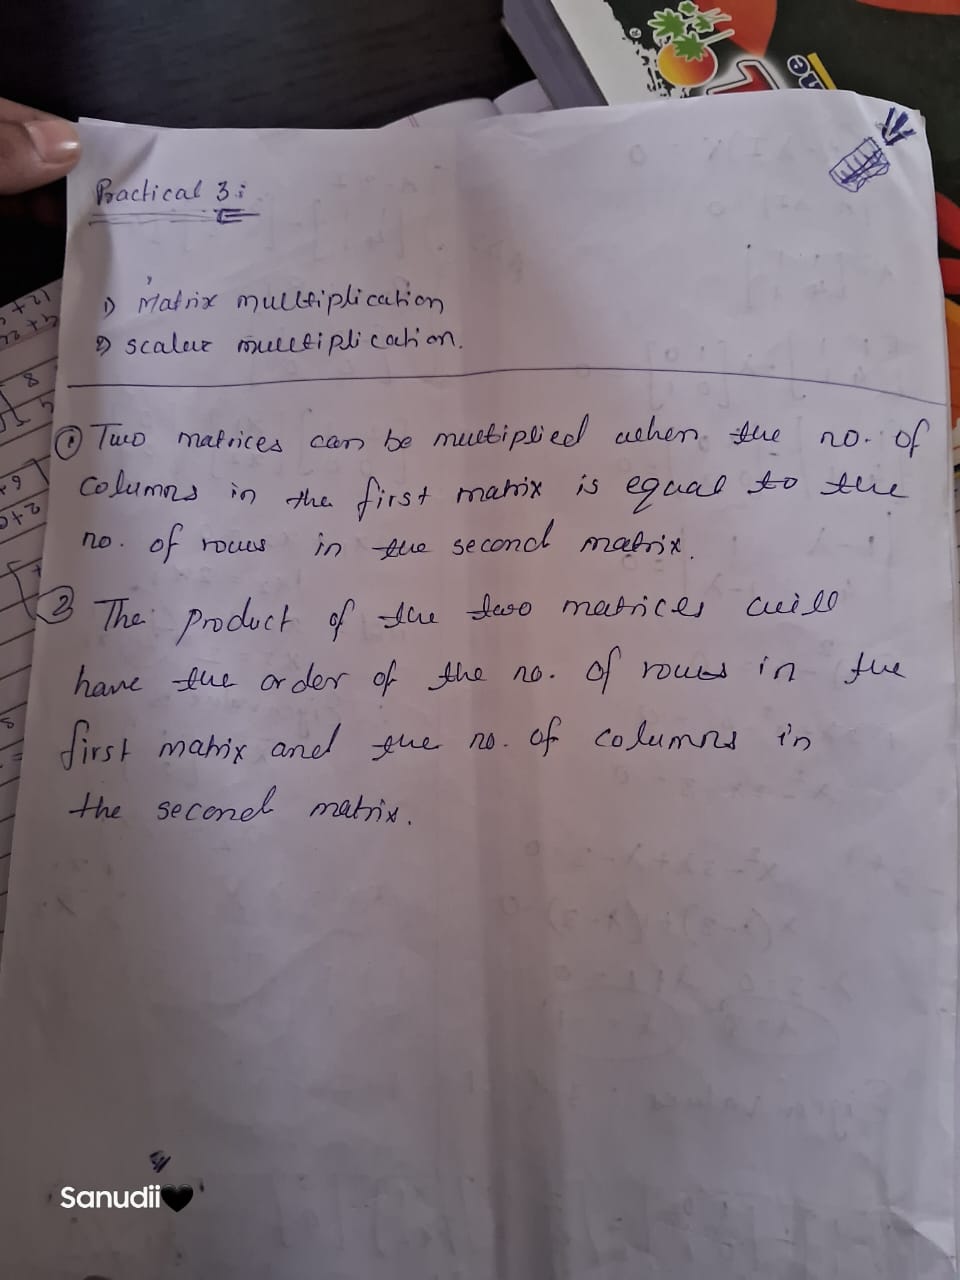 Practical 3:
1) Matrix multiplication
2) scalar multiplication.
① Two matrices can be multiplied when the no. of
columns in the first matrix is equal to the
no. of rows in the second matrix.
② The product of the two matrices will
have the order of the no. of rows in the
first matrix and the no. of columns in
the second matrix.
Sanudii🖤